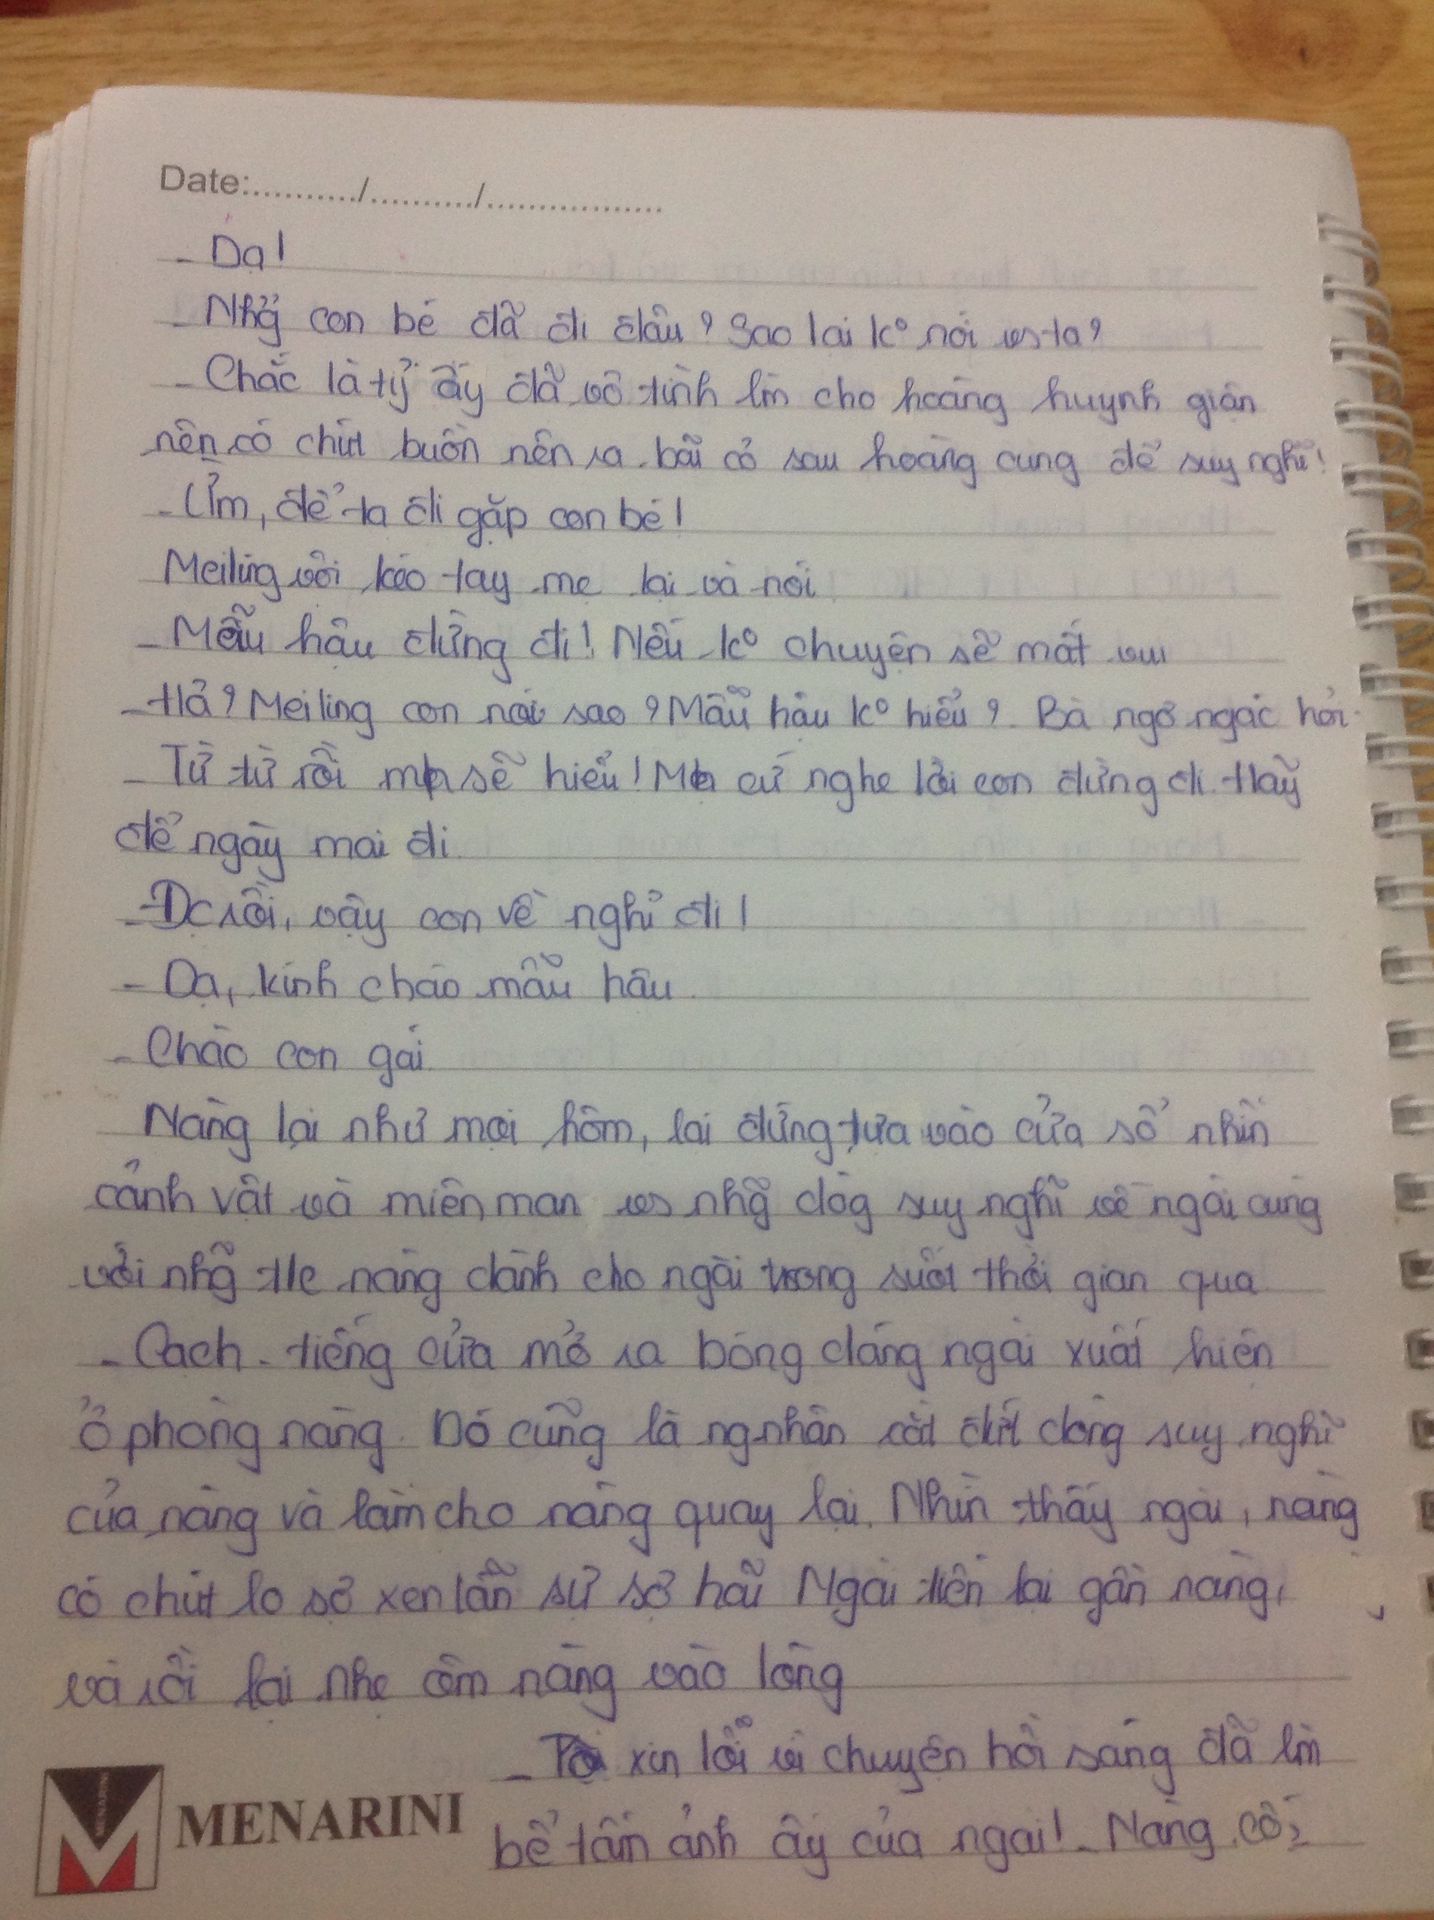 Date:........../........../.................
- Dạ!
- Nhg con bé đã đi đâu? Sao lại ko nói vs ta?
- Chắc là tỷ ấy đã vô tình lm cho hoàng huynh giận
nên có chút buồn nên ra bãi cỏ sau hoàng cung để suy nghĩ!
- Ừm, để ta đi gặp con bé!
Meiling vội kéo tay mẹ lại và nói
- Mẫu hậu đừng đi! Nếu ko chuyện sẽ mất vui
- Hả? Meiling con nói sao? Mẫu hậu ko hiểu? Bà ngơ ngác hỏi
- Từ từ rồi mẹ sẽ hiểu! Mẹ cứ nghe lời con đừng đi. Hãy
để ngày mai đi
- Đc rồi, vậy con về nghỉ đi!
- Dạ, kính chào mẫu hậu
- Chào con gái
Nàng lại như mọi hôm, lại đứng tựa vào cửa sổ nhìn
cảnh vật và miên man vs nhg dòg suy nghĩ về ngài cùng
với nhg t/c nàng dành cho ngài trong suốt thời gian qua
- Cạch - tiếng cửa mở ra bóng dáng ngài xuất hiện
ở phòng nàng. Đó cũng là ng nhân cắt đứt dòng suy nghĩ
của nàng và làm cho nàng quay lại. Nhìn thấy ngài, nàng
có chút lo sợ xen lẫn sự sợ hãi Ngài tiến lại gần nàng,
và rồi lại nhẹ ôm nàng vào lòng
- Tôi xin lỗi vì chuyện hồi sáng đã lm
bể tấm ảnh ấy của ngài! - Nàng cố
MENARINI